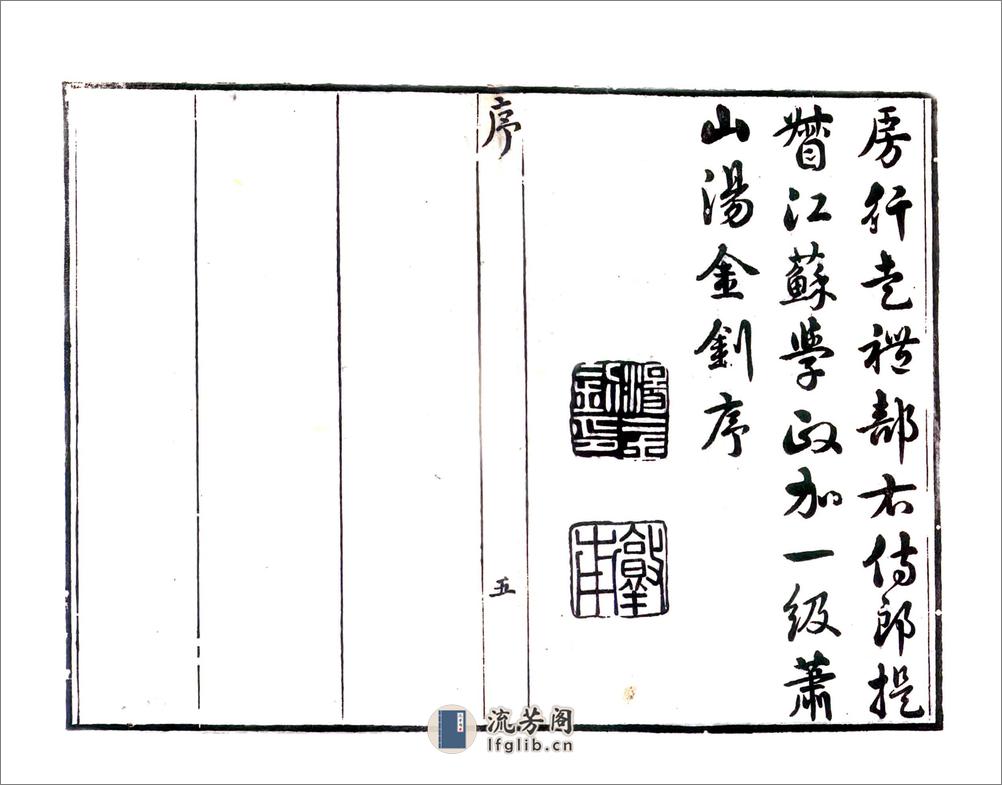 房行走禮部右侍郎提
督江蘇學政加一級蕭
山湯金釗序
湯金
釗印
敦甫
序
五
流芳阁
lfglib.cn